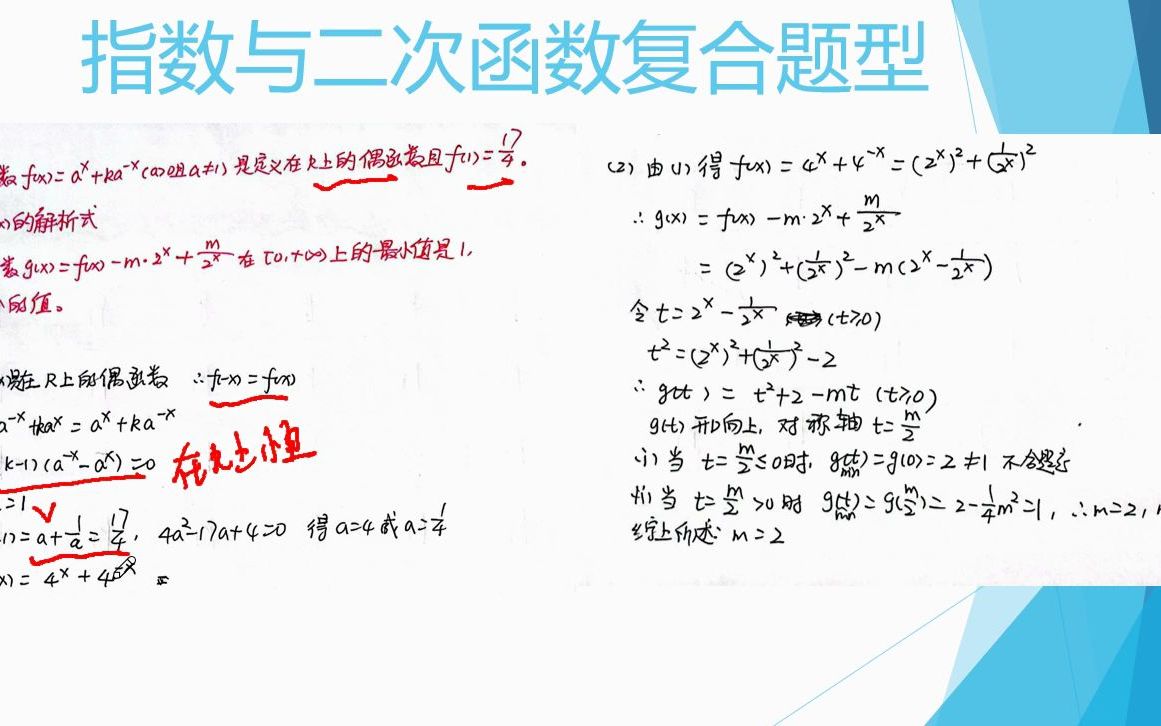 指数与二次函数复合题型
数 f(x)=a^x+ka^{-x}(a>0且a≠1) 是定义在R上的偶函数且f(1)=17/4。
x)的解析式
数 g(x)=f(x)-m·2^x+m/2^x 在[0,+∞)上的最小值是1,
的值。
是在R上的偶函数 ∴f(-x)=f(x)
a^{-x}+ka^x=a^x+ka^{-x}
k-1)(a^{-x}-a^x)=0
=1
1)=a+1/a=17/4, 4a²-17a+4=0 得a=4或a=1/4
x)=4^x+4^{-x}
(2)由(1)得f(x)=4^x+4^{-x}=(2^x)²+(1/2^x)²
∴g(x)=f(x)-m·2^x+m/2^x
=(2^x)²+(1/2^x)²-m(2^x-1/2^x)
令t=2^x-1/2^x (t≥0)
t²=(2^x)²+(1/2^x)²-2
∴g(t)=t²+2-mt (t≥0)
g(t)开口向上,对称轴t=m/2
(i)当t=m/2≤0时,g(t)min=g(0)=2≠1 不合题意
(ii)当t=m/2>0时 g(t)min=g(m/2)=2-1/4m²=1,∴m=2,
综上所述:m=2